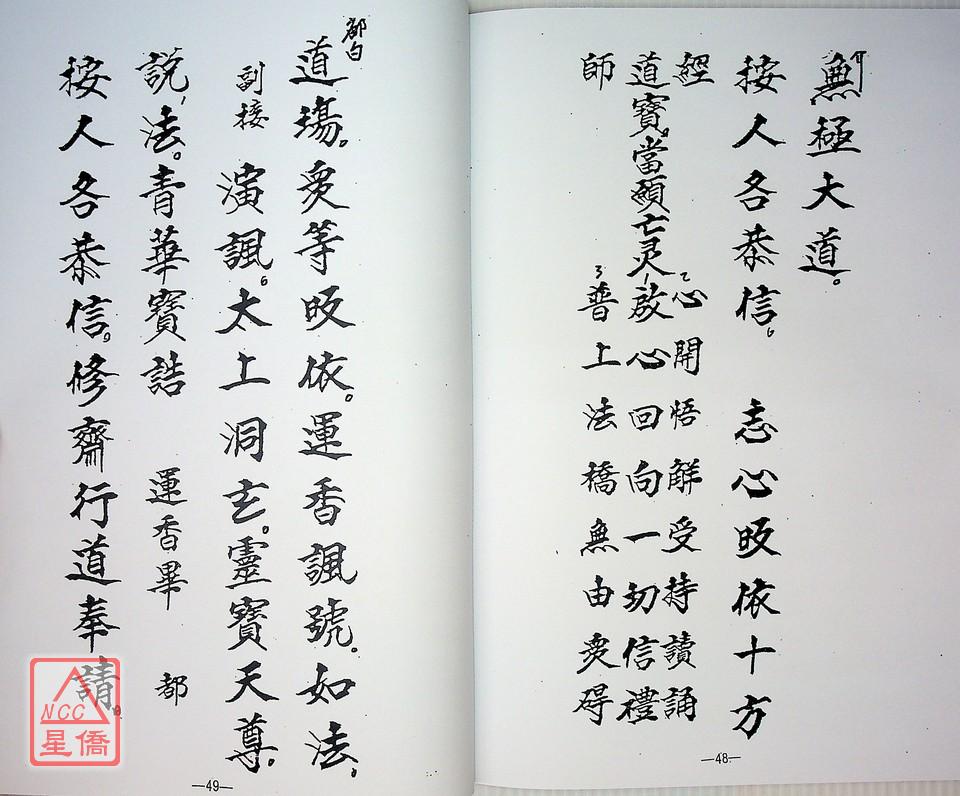 無極大道。
接人各恭信。 志心皈依十方
經 心開悟解受持讀誦
道寶。當願亡灵 啟心回向一切信禮
師 普上法橋無由衆碍
—48—
都白
道場。衆等皈依。運香諷號。如法,
副接 演諷。太上洞玄。靈寶天尊。
說法。青華寶誥 運香畢 都
接人各恭信。修齋行道奉請。
—49—
NCC
星僑